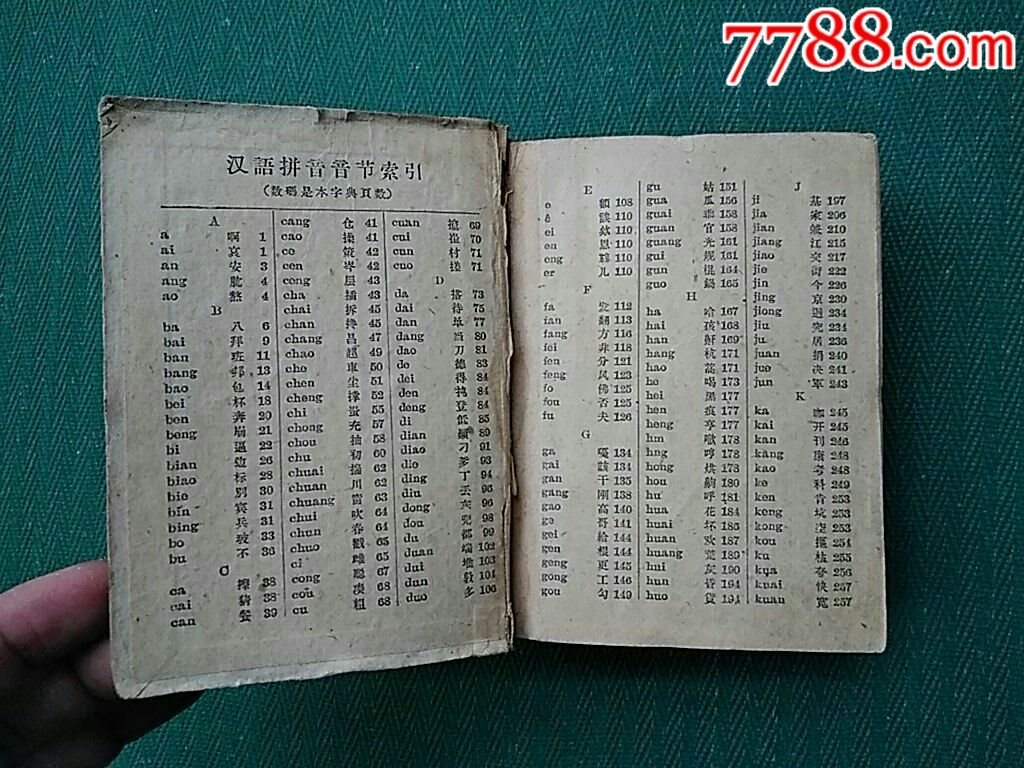 7788.com
汉語拼音音节索引
(数碼是本字典頁数)
A
a 啊 1
ai 哀 1
an 安 3
ang 肮 4
ao 熬 4
B
ba 八 6
bai 拜 9
ban 班 11
bang 邦 13
bao 包 14
bei 杯 18
ben 奔 20
beng 崩 21
bi 逼 22
bian 边 26
biao 标 28
bie 别 30
bin 宾 31
bing 兵 31
bo 玻 33
bu 不 36
C
ca 擦 38
cai 猜 38
can 餐 39
cang 仓 41
cao 操 41
ce 策 42
cen 岑 42
ceng 层 43
cha 插 43
chai 拆 45
chan 搀 45
chang 昌 47
chao 超 49
che 車 50
chen 尘 51
cheng 撑 52
chi 蚩 55
chong 充 57
chou 抽 58
chu 初 60
chuai 揣 62
chuan 川 62
chuang 窗 63
chui 吹 64
chun 春 64
chuo 戳 65
ci 雌 65
cong 聪 67
cou 凑 68
cu 粗 68
cuan 69
cui 崔 70
cun 村 71
cuo 搓 71
D
da 搭 73
dai 待 75
dan 单 77
dang 当 80
dao 刀 81
de 德 83
dei 得 84
den 84
deng 登 84
di 低 85
dian 顛 89
diao 刁 91
die 爹 93
ding 丁 94
diu 丢 96
dong 东 96
dou 兜 98
du 都 99
duan 端 102
dui 堆 103
dun 敦 104
duo 多 106
E
e 額 108
ê 誒 110
ei 欸 110
en 恩 110
eng 鞥 110
er 儿 110
F
fa 发 112
fan 翻 113
fang 方 116
fei 非 118
fen 分 121
feng 风 123
fo 佛 125
fou 否 125
fu 夫 126
G
ga 嘎 134
gai 該 134
gan 干 135
gang 刚 138
gao 高 140
ge 哥 141
gei 給 144
gen 根 144
geng 更 145
gong 工 146
gou 勾 149
gu 姑 151
gua 瓜 156
guai 乖 158
guan 官 158
guang 光 161
gui 规 161
gun 棍 164
guo 鍋 165
H
ha 哈 167
hai 孩 168
han 鼾 169
hang 杭 171
hao 蒿 171
he 喝 173
hei 黑 177
hen 痕 177
heng 亨 177
hm 噷 178
hng 哼 178
hong 烘 178
hou 齁 180
hu 呼 181
hua 花 184
huai 坏 186
huan 欢 187
huang 荒 189
hui 灰 190
hun 昏 194
huo 194
J
ji 基 197
jia 家 206
jian 兼 210
jiang 江 215
jiao 交 217
jie 街 222
jin 今 226
jing 京 230
jiong 迥 234
jiu 究 234
ju 居 236
juan 捐 240
jue 决 241
jun 軍 243
K
ka 咖 245
kai 开 245
kan 刊 246
kang 康 248
kao 考 248
ke 科 249
ken 肯 253
keng 坑 253
kong 空 253
kou 摳 254
ku 枯 255
kua 夸 256
kuai 快 257
kuan 宽 257